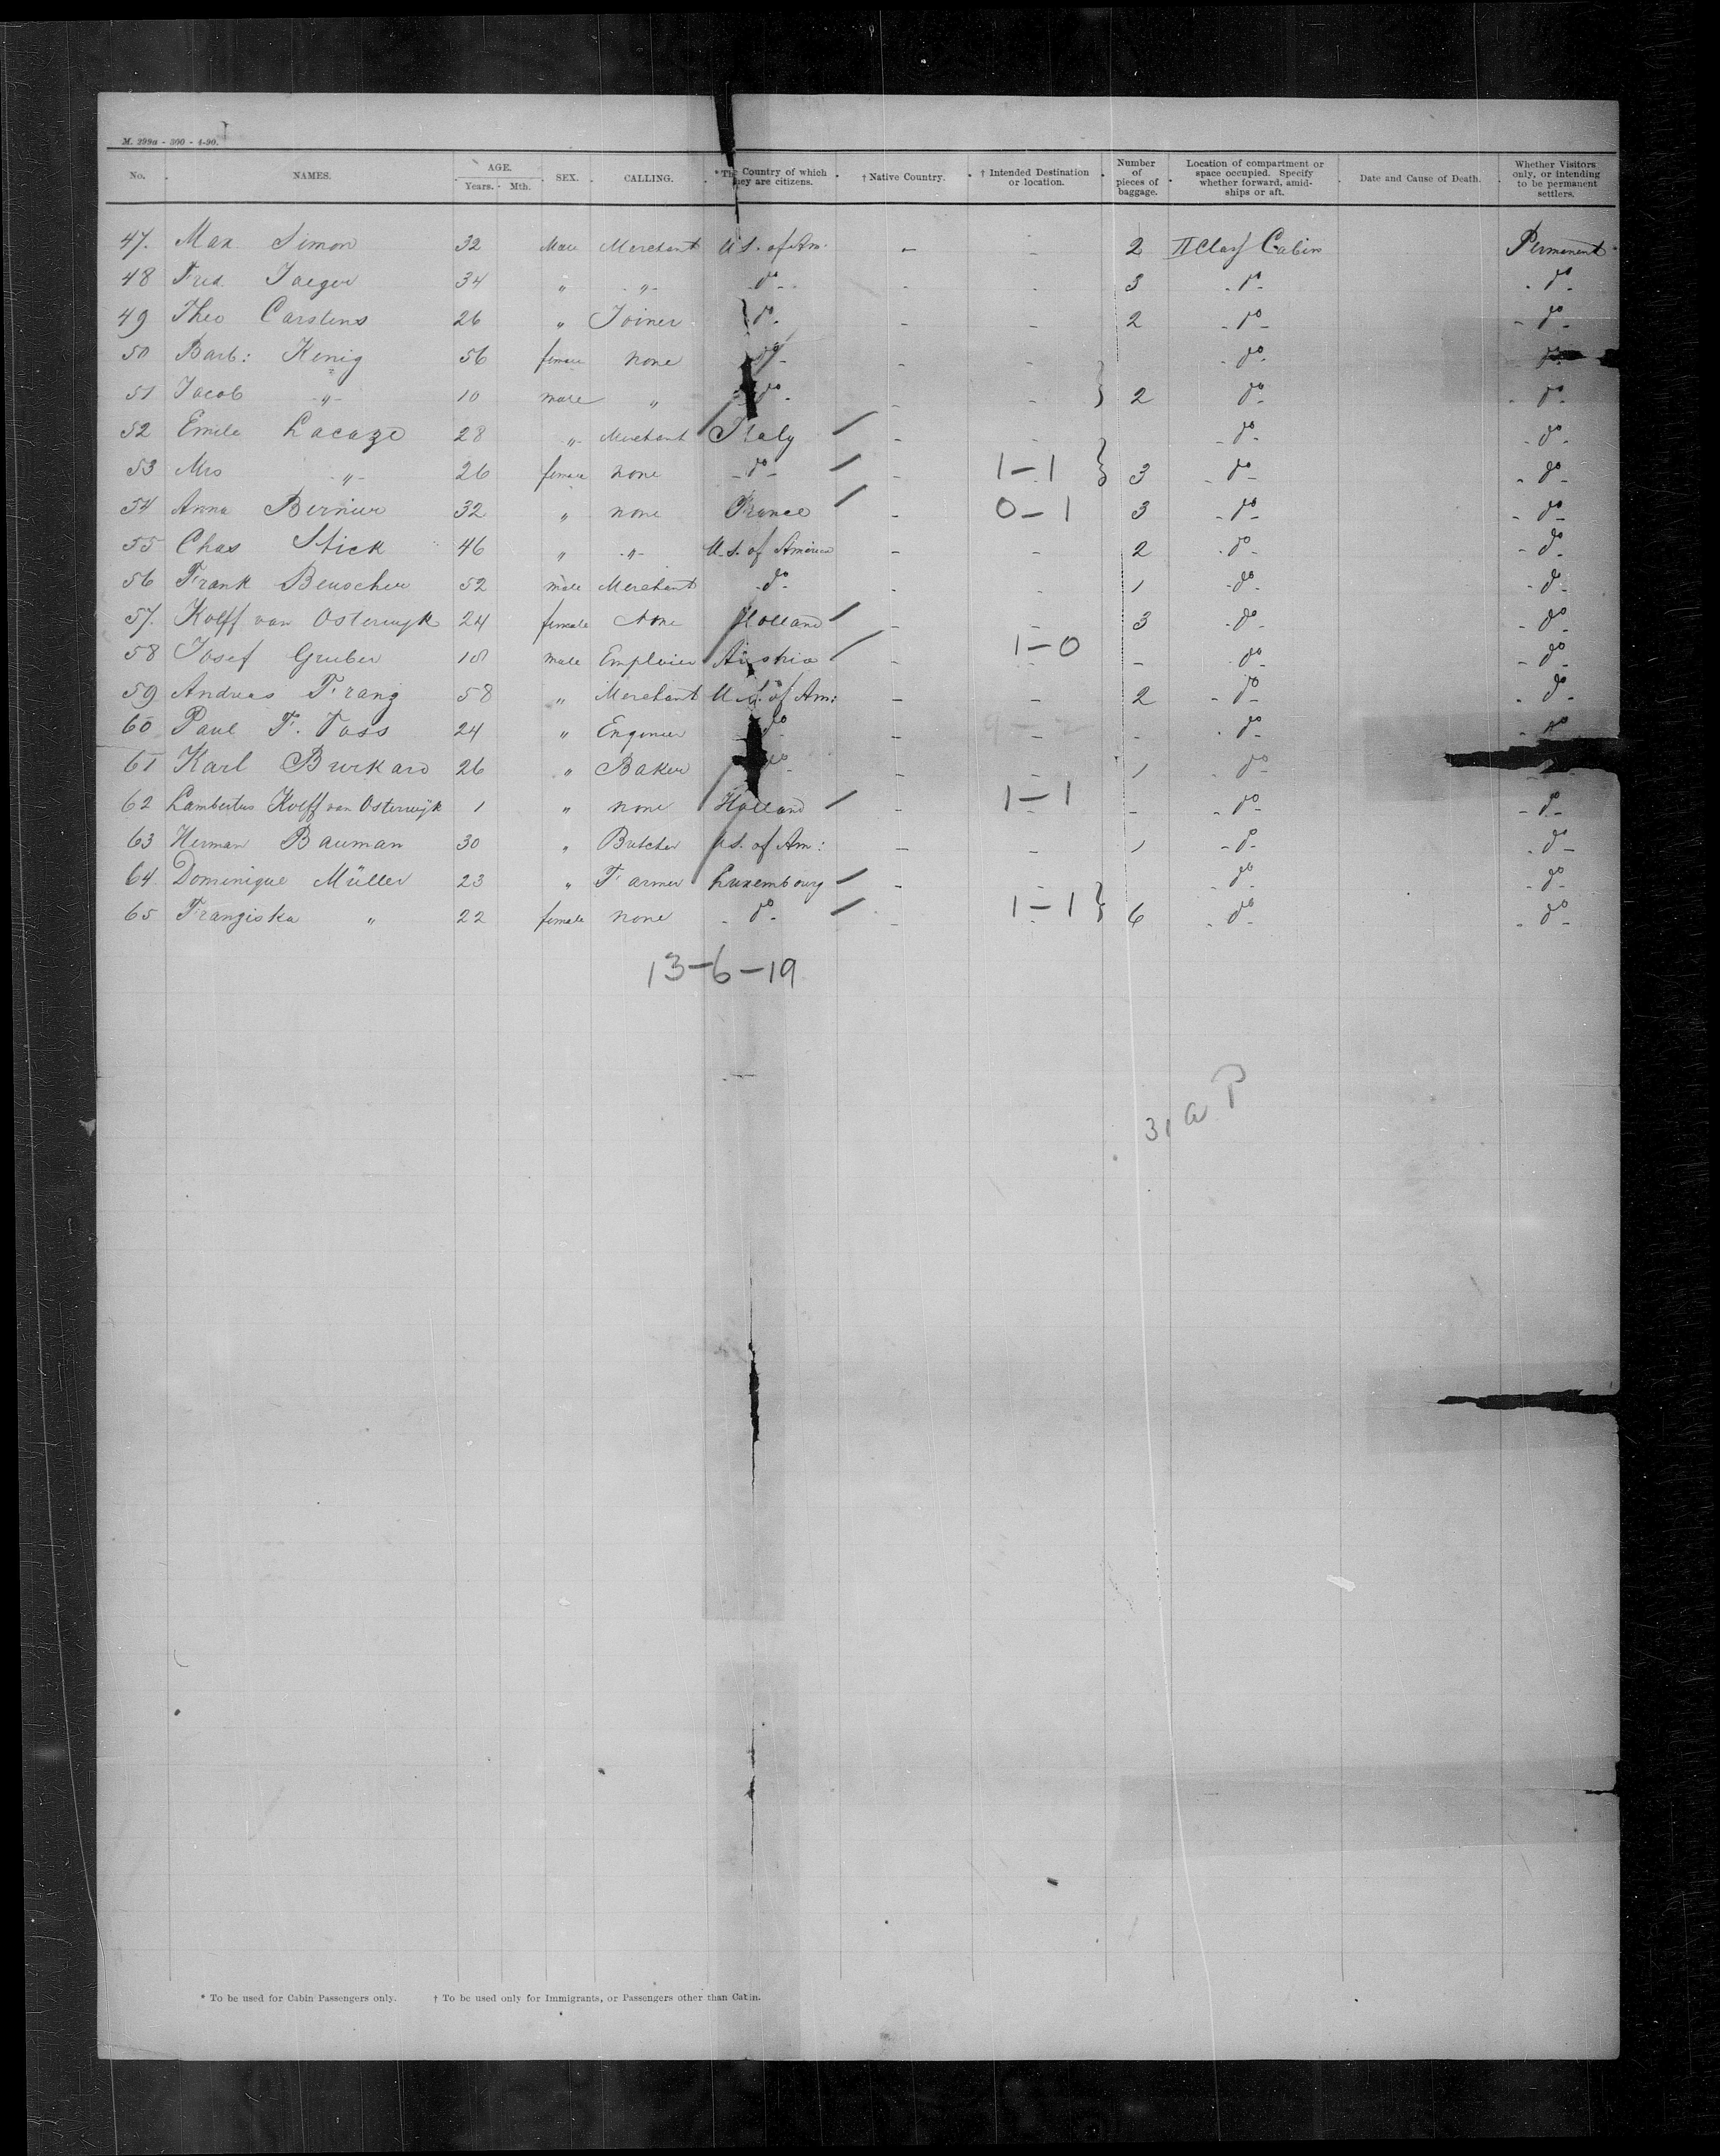 M. 299a - 300 - 4-90.
No. NAMES. AGE. Years. Mth. SEX. CALLING. *The Country of which they are citizens. † Native Country. † Intended Destination or location. Number of pieces of baggage. Location of compartment or space occupied. Specify whether forward, amidships or aft. Date and Cause of Death. Whether Visitors only, or intending to be permanent settlers.
47. Max Simon 32 Male Merchant U.S. of Am: - - 2 II Class Cabin Permanent
48 Fred. Jaeger 34 " " do - - 3 do do
49 Theo Carstens 26 " Joiner do - - 2 do do
50 Barb: Kenig 56 female none do - - do do
51 Jacob " 10 male " do - - } 2 do do
52 Emile Lacaze 28 " Merchant Italy / - - do do
53 Mrs " 26 female none do / - 1-1 } 3 do do
54 Anna Bernier 32 " none France / - 0-1 3 do do
55 Chas Stick 46 " " U.S. of America - - 2 do do
56 Frank Beuscher 52 male Merchant do - - 1 do do
57. Kolff van Osterwyk 24 female None Holland / - - 3 do do
58 Josef Gruber 18 male Employer Austria / - 1-0 - do do
59 Andreas Frang 58 " Merchant U.S. of Am: - - 2 do do
60 Paul F. Tass 24 " Engineer do - - - do do
61 Karl Burkard 26 " Baker do - - 1 do do
62 Lambertus Kolff van Osterwijk 1 " none Holland / - 1-1 - do do
63 Herman Bauman 30 " Butcher U.S. of Am: - - 1 do do
64 Dominique Müller 23 " Farmer Luxembourg / - - do do
65 Frangiska " 22 female none do / - 1-1 } 6 do do
13-6-19
31 a P
* To be used for Cabin Passengers only. † To be used only for Immigrants, or Passengers other than Cabin.